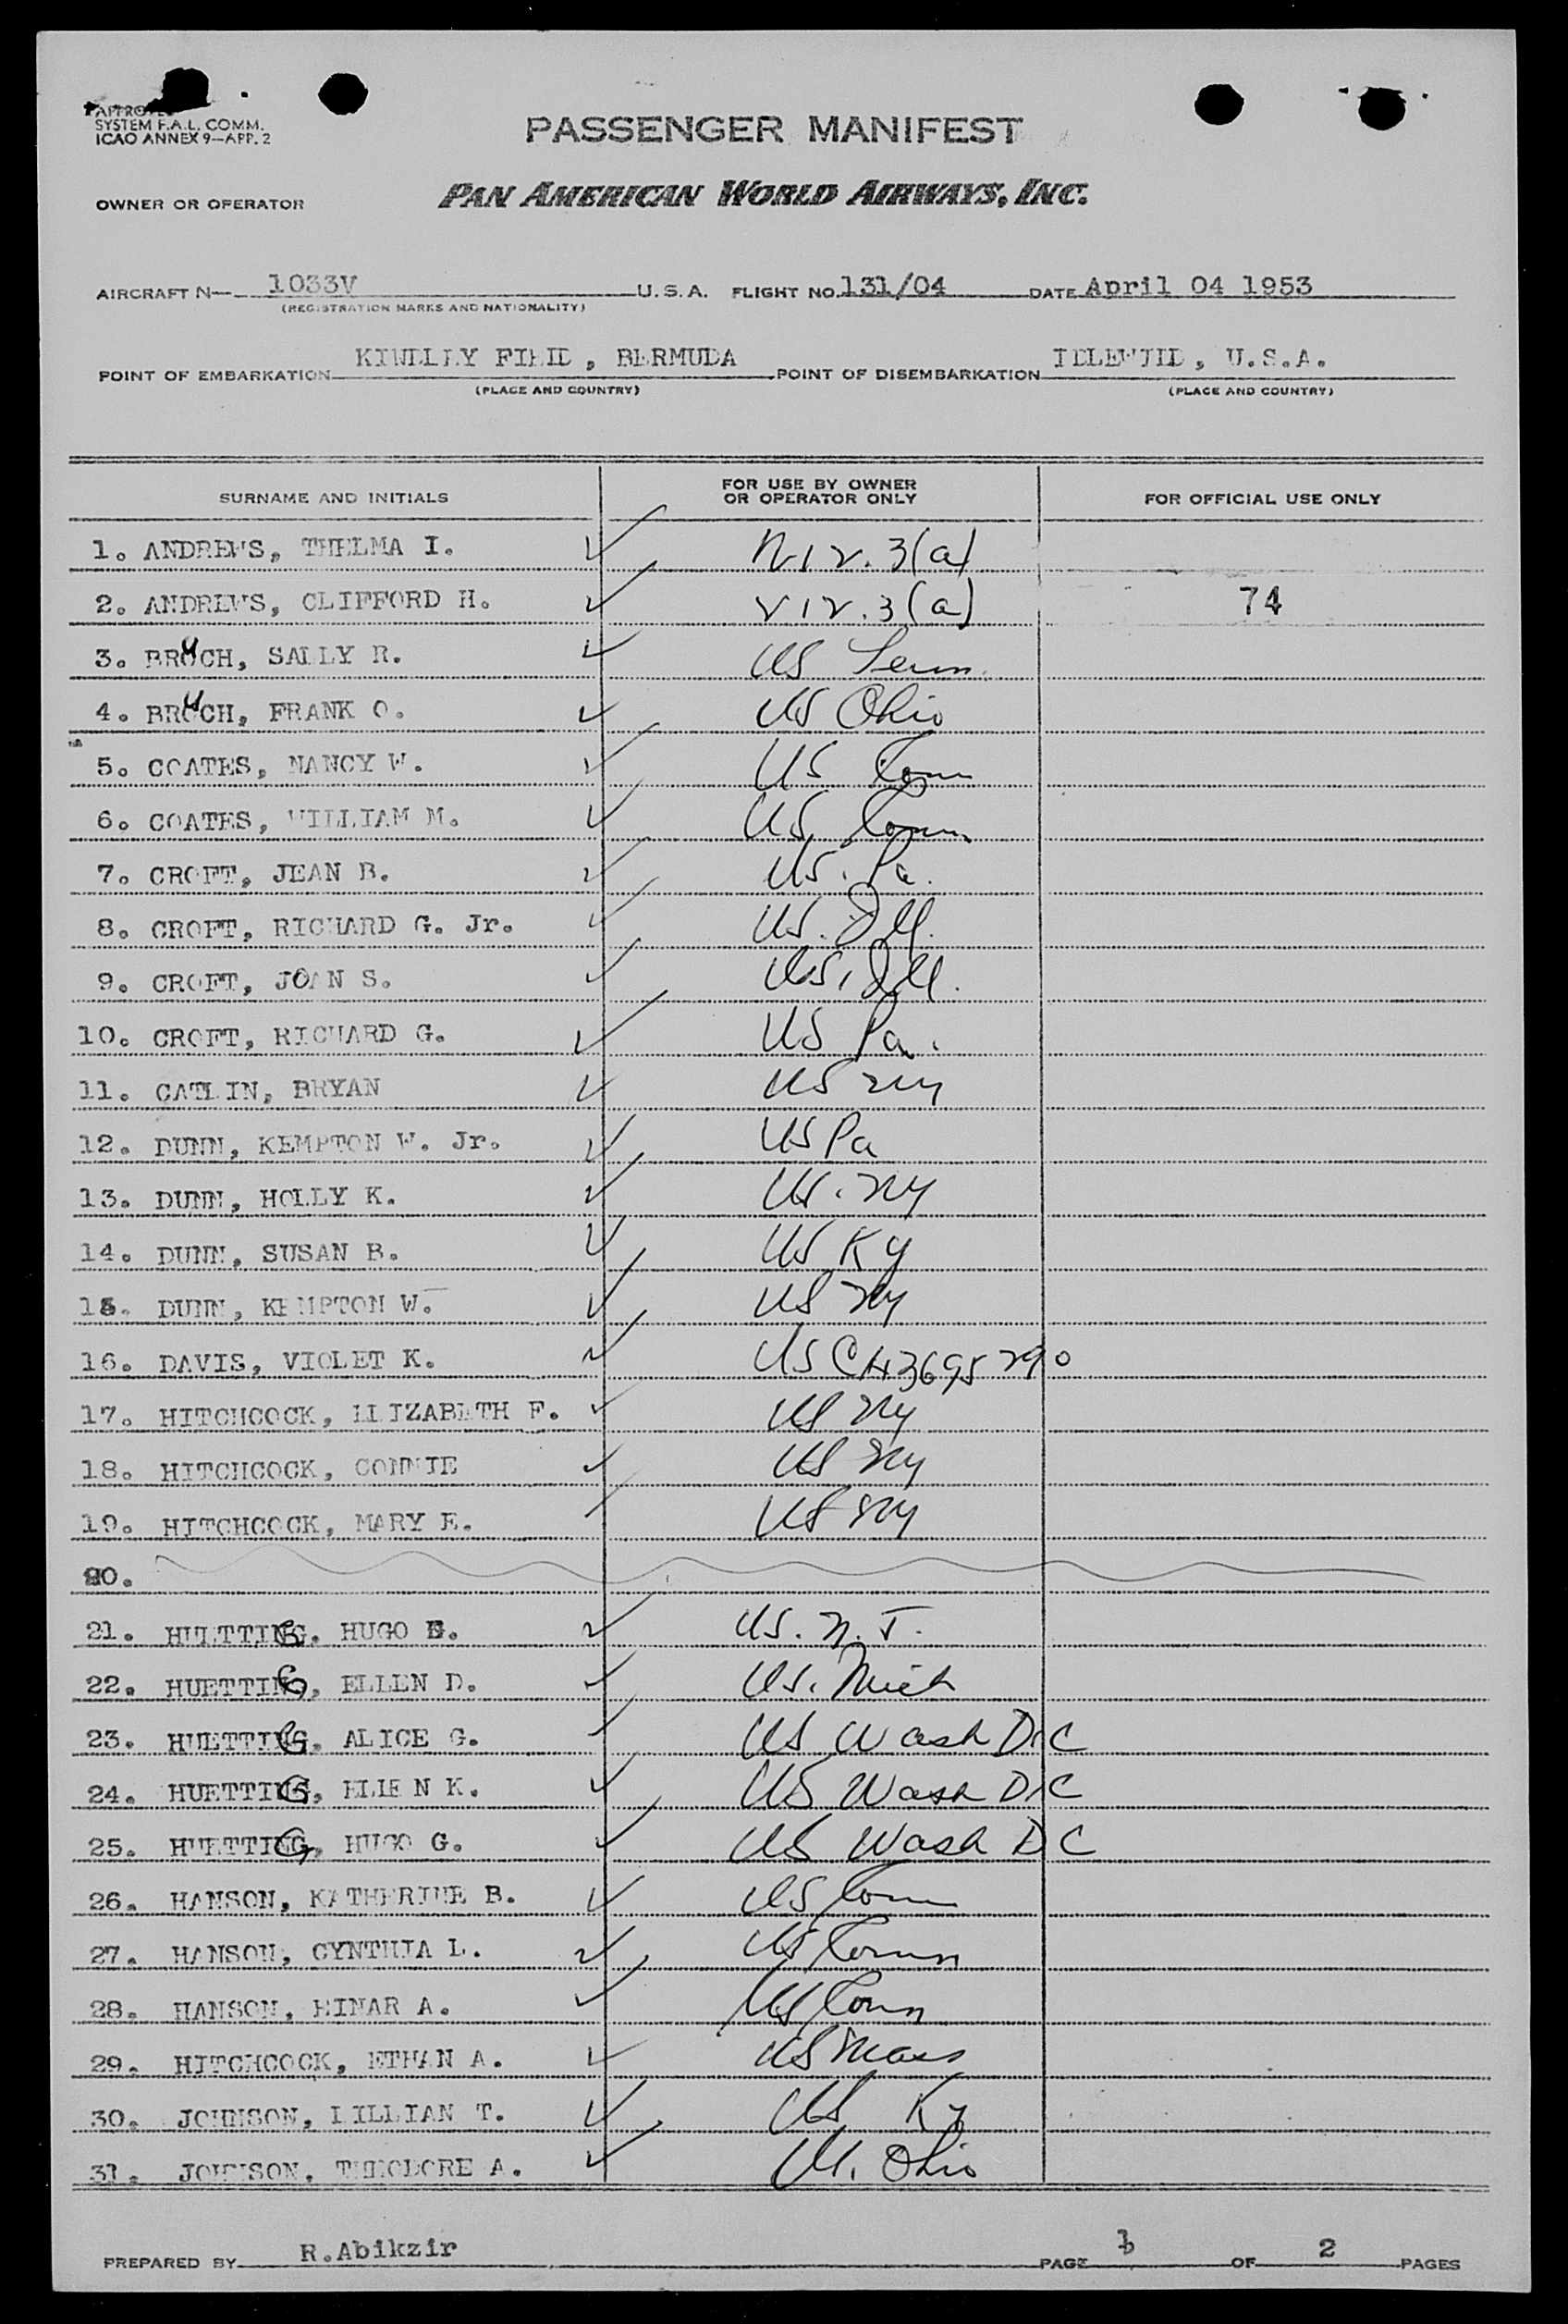 APPROVED
SYSTEM F.A.L. COMM.
ICAO ANNEX 9—APP. 2
PASSENGER MANIFEST
OWNER OR OPERATOR PAN AMERICAN WORLD AIRWAYS, INC.
AIRCRAFT N— 1033V U.S.A. FLIGHT NO. 131/04 DATE April 04 1953
(REGISTRATION MARKS AND NATIONALITY)
POINT OF EMBARKATION KINDLEY FIELD, BERMUDA POINT OF DISEMBARKATION IDLEWILD, U.S.A.
(PLACE AND COUNTRY) (PLACE AND COUNTRY)
SURNAME AND INITIALS FOR USE BY OWNER OR OPERATOR ONLY FOR OFFICIAL USE ONLY
1. ANDREWS, THELMA I. 3(a)
2. ANDREWS, CLIFFORD H. 3(a) 74
3. BRUCH, SALLY R. US
4. BRUCH, FRANK O. US Ohio
5. COATES, NANCY W. US Conn
6. COATES, WILLIAM M. US Conn
7. CROFT, JEAN B. US. Pa.
8. CROFT, RICHARD G. Jr. US. Ill.
9. CROFT, JOAN S. US, Ill.
10. CROFT, RICHARD G. US Pa.
11. CATLIN, BRYAN US NY
12. DUNN, KEMPTON W. Jr. US Pa
13. DUNN, HOLLY K. US. NY
14. DUNN, SUSAN B. US KY
15. DUNN, KEMPTON W. US NY
16. DAVIS, VIOLET K. US
17. HITCHCOCK, ELIZABETH F. US NY
18. HITCHCOCK, CONNIE US NY
19. HITCHCOCK, MARY E. US NY
20.
21. HUETTING, HUGO E. US. N.J.
22. HUETTING, ELLEN D. US. Mich
23. HUETTING, ALICE G. US Wash DC
24. HUETTING, ELLEN K. US Wash DC
25. HUETTING, HUGO G. US Wash DC
26. HANSON, KATHERINE B. US Conn
27. HANSON, CYNTHIA L. US Conn
28. HANSON, EINAR A. US Conn
29. HITCHCOCK, ETHAN A. US Mass
30. JOHNSON, LILLIAN T. US Ky
31. JOHNSON, THEODORE A. US. Ohio
PREPARED BY R.Abikzir PAGE 1 OF 2 PAGES